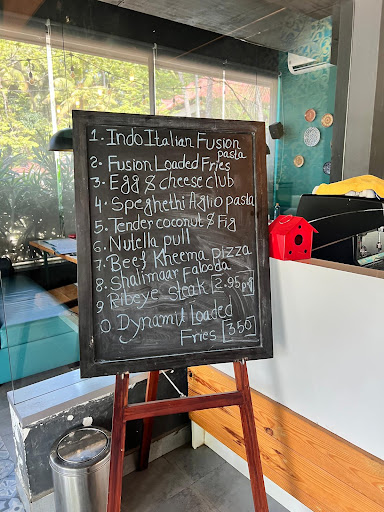 1. Indo Italian Fusion
pasta
2. Fusion Loaded Fries
3. Egg & cheese club
4. Speghethi Aglio pasta
5. Tender coconut & Fig
6. Nutella pull
7. Beef Kheema pizza
8. Shalimaar Falooda
9. Ribeye steak
0. Dynamit loaded
Fries [350]